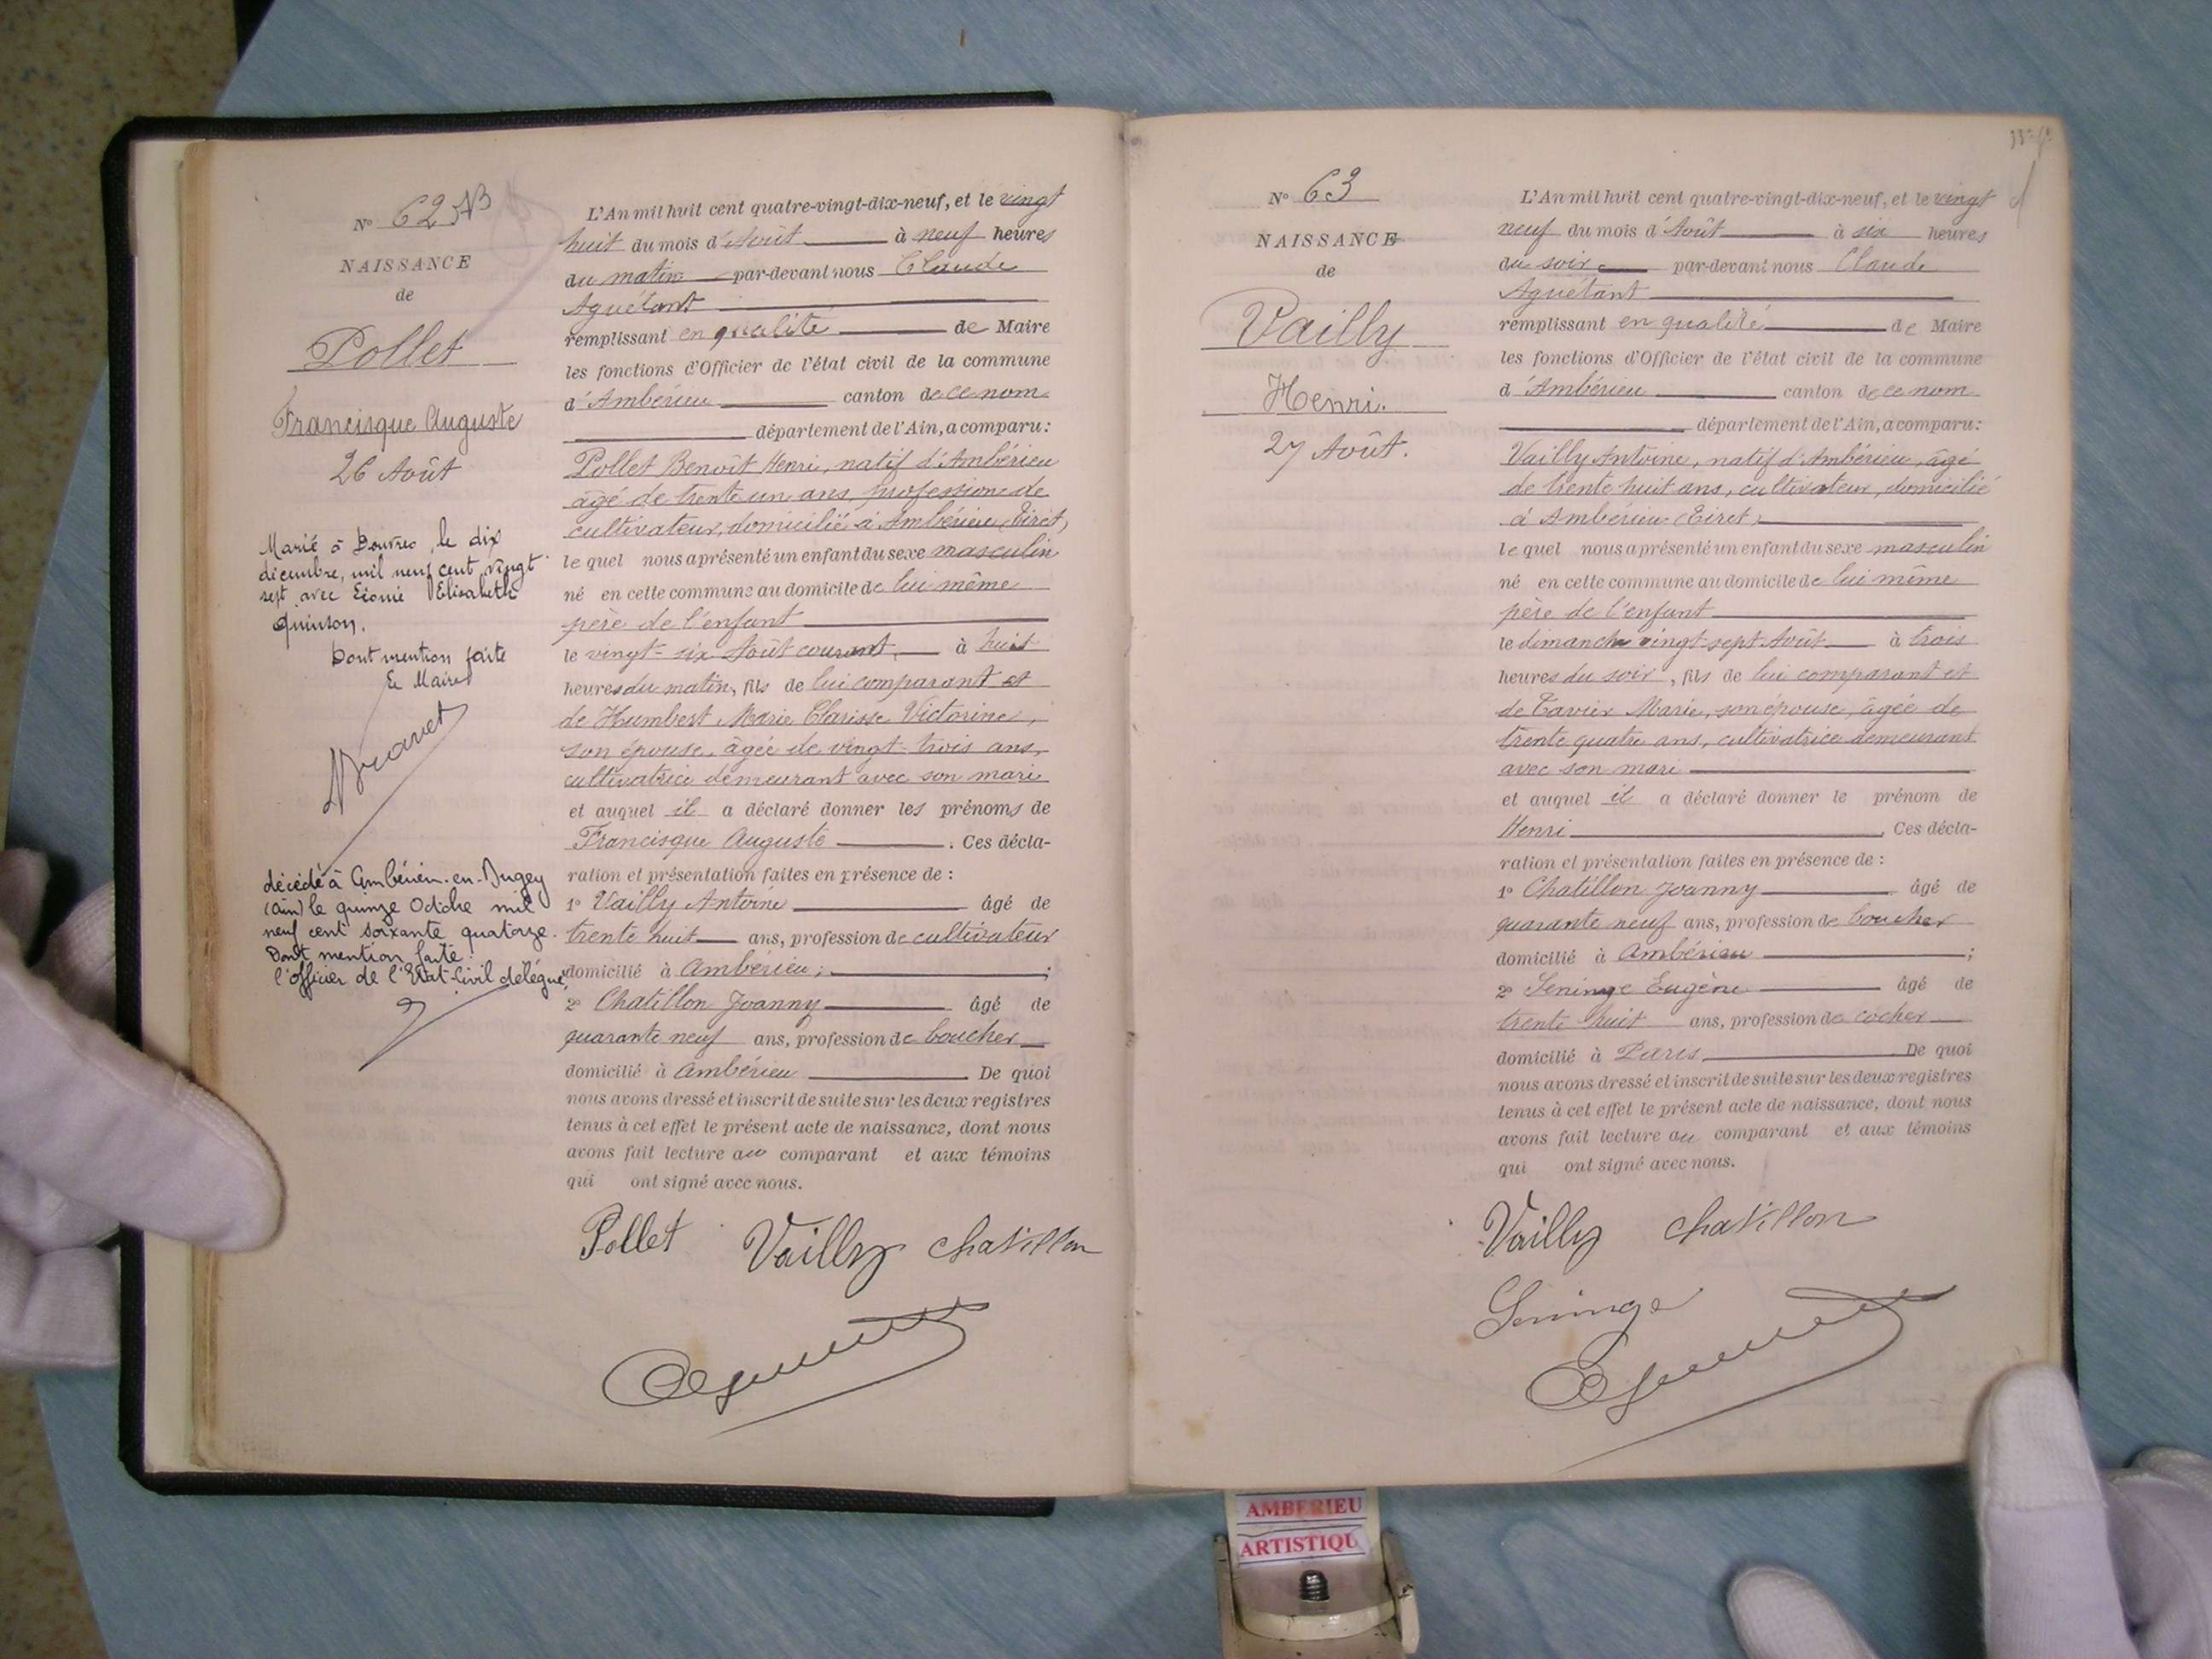 N° 62
NAISSANCE
de
Pollet
Francisque Auguste
26 Août
Marié à Douvres, le dix
décembre, mil neuf cent vingt
sept avec Léonie Elisabeth
Quinson.
Dont mention faite
Le Maire
décédé à Ambérieu-en-Bugey
(Ain) le quinze Octobre mil
neuf cent soixante quatorze.
Dont mention faite.
l'officier de l'Etat-Civil délégué,
L'An mil huit cent quatre-vingt-dix-neuf, et le vingt
huit du mois d'Août à neuf heures
du matin par-devant nous Claude
Aguétant
remplissant en qualité de Maire
les fonctions d'Officier de l'état civil de la commune
d'Ambérieu canton de ce nom
département de l'Ain, a comparu :
Pollet Benoît Henri, natif d'Ambérieu
âgé de trente un ans, profession de
cultivateur, domicilié à Ambérieu (Tiret)
le quel nous a présenté un enfant du sexe masculin
né en cette commune au domicile de lui même
père de l'enfant
le vingt-six Août courant, à huit
heures du matin, fils de lui comparant et
de Humbert Marie Clarisse Victorine,
son épouse, âgée de vingt-trois ans,
cultivatrice demeurant avec son mari
et auquel il a déclaré donner les prénoms de
Francisque Auguste . Ces décla-
ration et présentation faites en présence de :
1° Vailly Antoine âgé de
trente huit ans, profession de cultivateur
domicilié à Ambérieu ;
2° Chatillon Joanny âgé de
quarante neuf ans, profession de boucher
domicilié à Ambérieu . De quoi
nous avons dressé et inscrit de suite sur les deux registres
tenus à cet effet le présent acte de naissance, dont nous
avons fait lecture au comparant et aux témoins
qui ont signé avec nous.
Pollet Vailly Chatillon
N° 63
NAISSANCE
de
Vailly
Henri.
27 Août.
L'An mil huit cent quatre-vingt-dix-neuf, et le vingt
neuf du mois d'Août à six heures
du soir par-devant nous Claude
Aguétant
remplissant en qualité de Maire
les fonctions d'Officier de l'état civil de la commune
d'Ambérieu canton de ce nom
département de l'Ain, a comparu :
Vailly Antoine, natif d'Ambérieu, âgé
de trente huit ans, cultivateur, domicilié
à Ambérieu (Tiret)
le quel nous a présenté un enfant du sexe masculin
né en cette commune au domicile de lui même
père de l'enfant
le dimanche vingt-sept Août à trois
heures du soir, fils de lui comparant et
de Tavier Marie, son épouse, âgée de
trente quatre ans, cultivatrice demeurant
avec son mari
et auquel il a déclaré donner le prénom de
Henri . Ces décla-
ration et présentation faites en présence de :
1° Chatillon Joanny âgé de
quarante neuf ans, profession de boucher
domicilié à Ambérieu ;
2° Seninge Eugène âgé de
trente huit ans, profession de cocher
domicilié à Paris . De quoi
nous avons dressé et inscrit de suite sur les deux registres
tenus à cet effet le présent acte de naissance, dont nous
avons fait lecture au comparant et aux témoins
qui ont signé avec nous.
Vailly Chatillon
Seninge
AMBERIEU
ARTISTIQU